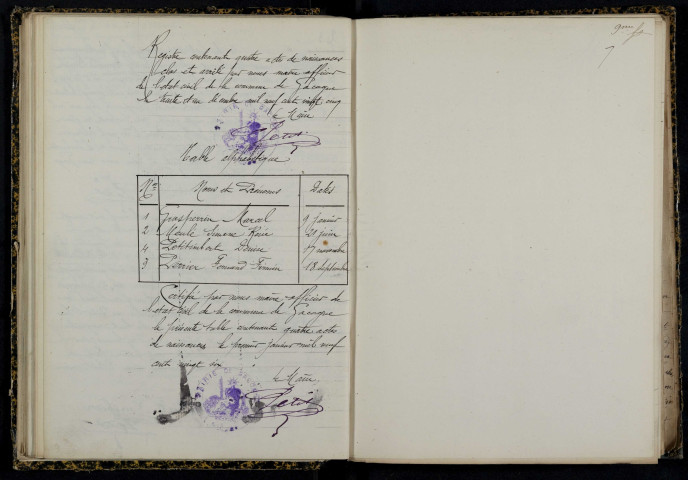 Registre contenant quatre actes de naissances
clos et arrêté par nous maire officier
de l'état civil de la commune de
le trente et un décembre mil neuf cent vingt cinq
Le Maire
Table alphabétique
Nos Noms et Prénoms Dates
1 Grosperrin Marcel 9 janvier
2 Meule Simone 21 juin
4 Petitimbert Denise 17 novembre
3 Perrier Fernand Firmin 18 septembre
Certifié par nous maire officier de
l'état civil de la commune de
la présente table contenant quatre actes
de naissances le premier janvier mil neuf
cent vingt six
Le Maire